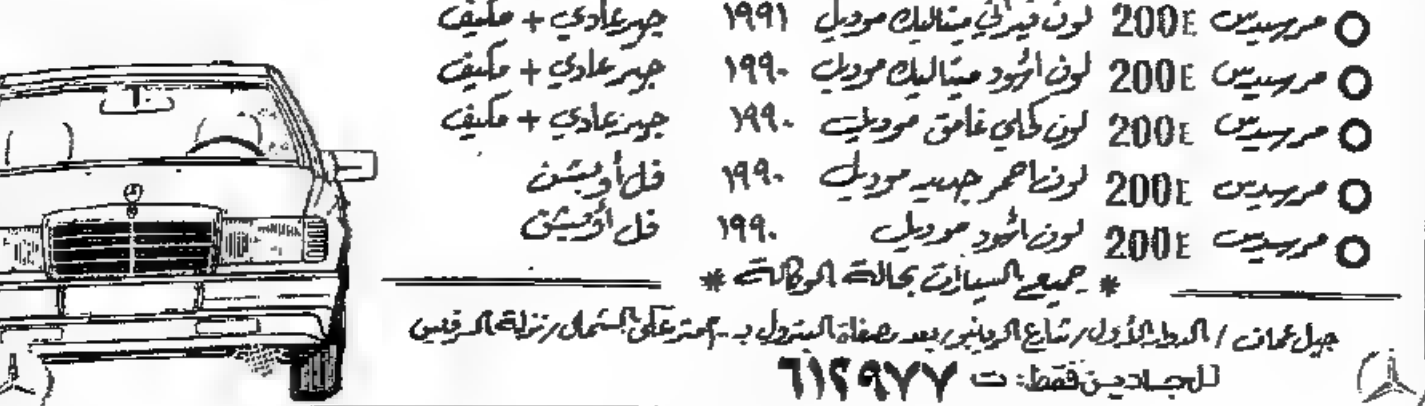 مرسيدس 200E لون فيراني ميتاليك موديل ١٩٩١ جير عادي + مكيف
مرسيدس 200E لون اسود ميتاليك موديل ١٩٩٠ جير عادي + مكيف
مرسيدس 200E لون كحلي غامق موديل ١٩٩٠ جير عادي + مكيف
مرسيدس 200E لون احمر جديد موديل ١٩٩٠ فل أوبشن
مرسيدس 200E لون اسود موديل ١٩٩٠ فل أوبشن
* جميع السيارات بحالة الوكالة *
جبل عمان / الدوار الأول / شارع الرينبو بعد مصفاة البترول بـ متر على الشمال / نزلة
للجادين فقط: ت ٦١٢٩٧٧